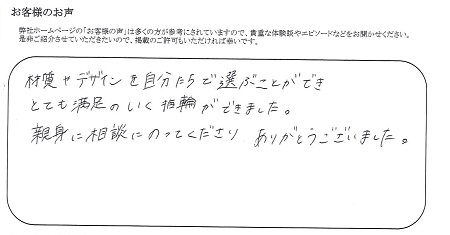 お客様のお声
弊社ホームページの「お客様の声」は多くの方が参考にされていますので、貴重な体験談やエピソードなどをお聞かせください。
是非ご紹介させていただきたいので、掲載のご許可もいただければ幸いです。
材質やデザインを自分たちで選ぶことができ
とても満足のいく指輪ができました。
親身に相談にのってくださり ありがとうございました。